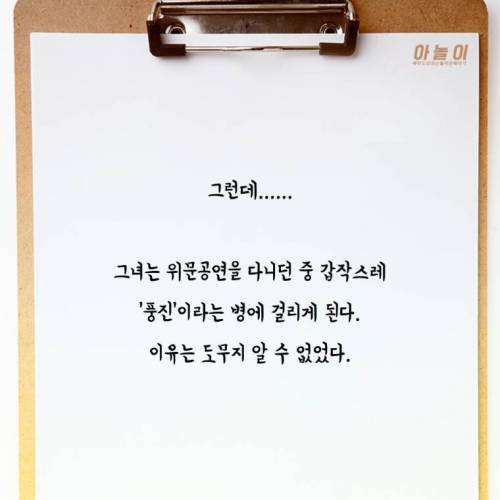 아놀이
그런데......
그녀는 위문공연을 다니던 중 갑작스레
'풍진'이라는 병에 걸리게 된다.
이유는 도무지 알 수 없었다.